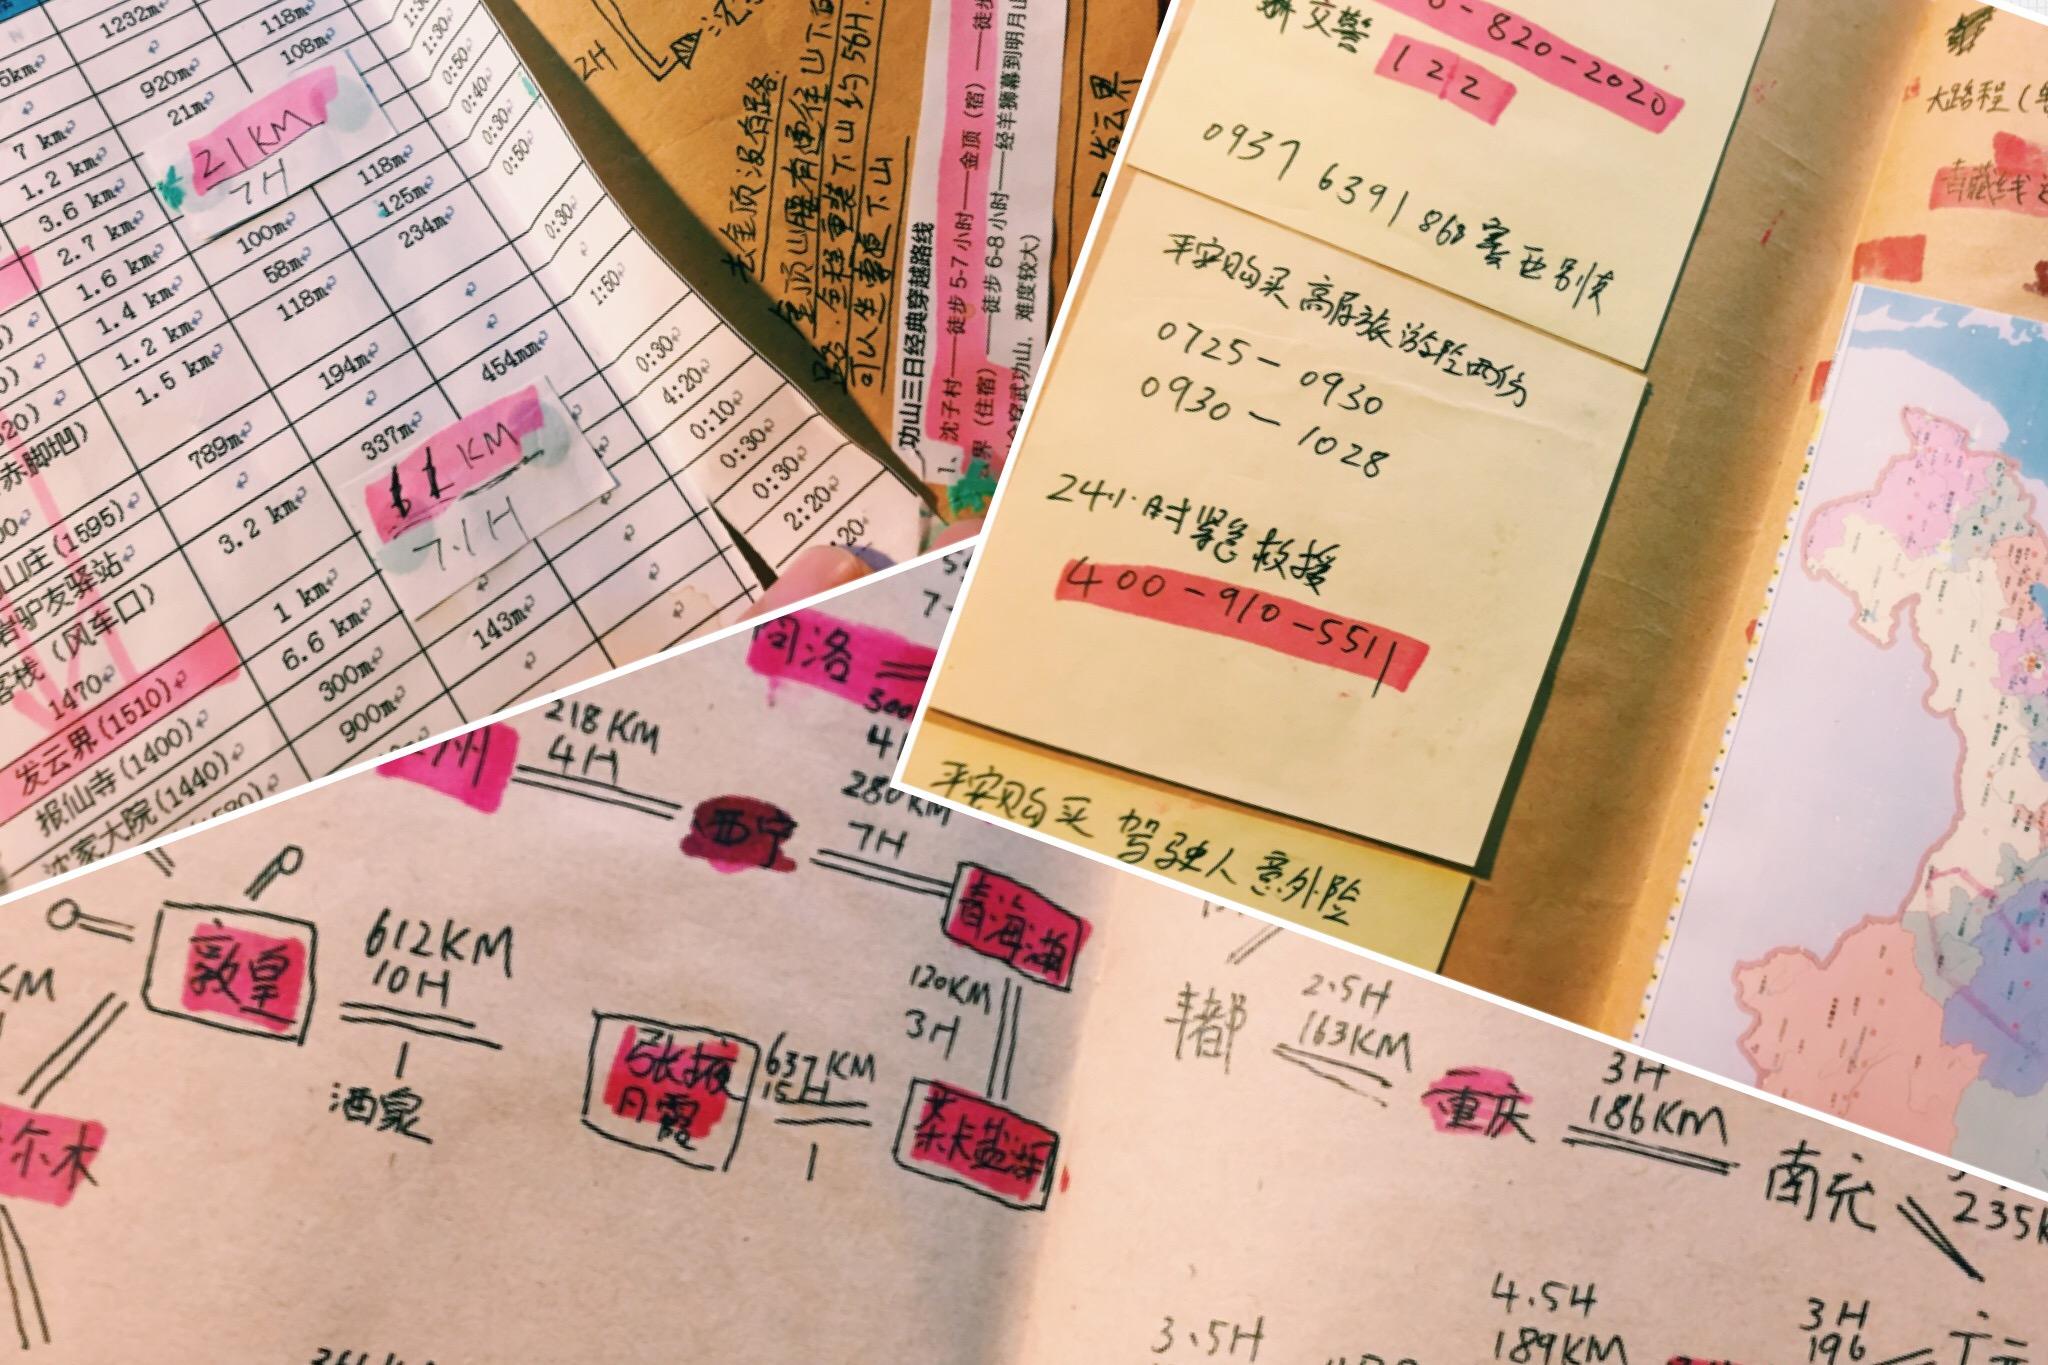 1232m
118m
920m
108m
21m
21KM
7H
7 km
1.2 km
3.6 km
2.7 km
1.6 km
1.4 km
1.2 km
1.5 km
118m
125m
100m
234m
58m
118m
194m
454mm
789m
337m
KM
7.1H
3.2 km
1 km
6.6 km
300m
143m
900m
1:30
0:50
0:40
0:30
0:50
0:30
1:50
0:30
4:20
0:10
0:30
0:30
2:20
赤脚地凹)
山庄(1595)
岩驴友驿站
客栈(风车口)
1470
发云界(1510)
报仙寺(1400)
沈家大院(1440)
2H
去金顶没有路.
金顶山腰有通往山下的
路.全程重装下山约56H.
可以坐車更下山
功山三日经典穿越路线
1、沈子村——徒步5-7小时——金顶(宿)——徒步
界(住宿)——徒步6-8小时——经羊狮幕到明月山
穿武功山,难度较大)
发云界
-820-2020
交警
122
0937 6391 863 塞西别怯
平安购买 高原旅游险两份
0725-0930
0930-1028
24小时紧急救援
400-910-5511
平安购买 驾驶人意外险
大路程(
青藏线
同洛
州
218KM
4H
西宁
280KM
7H
青海湖
120KM
3H
茶卡盐湖
637KM
15H
张掖
丹霞
612KM
10H
酒泉
敦皇
KM
尔木
丰都
2.5H
163KM
重庆
3H
186KM
南充
235K
4.5H
189KM
3.5H
3H
196